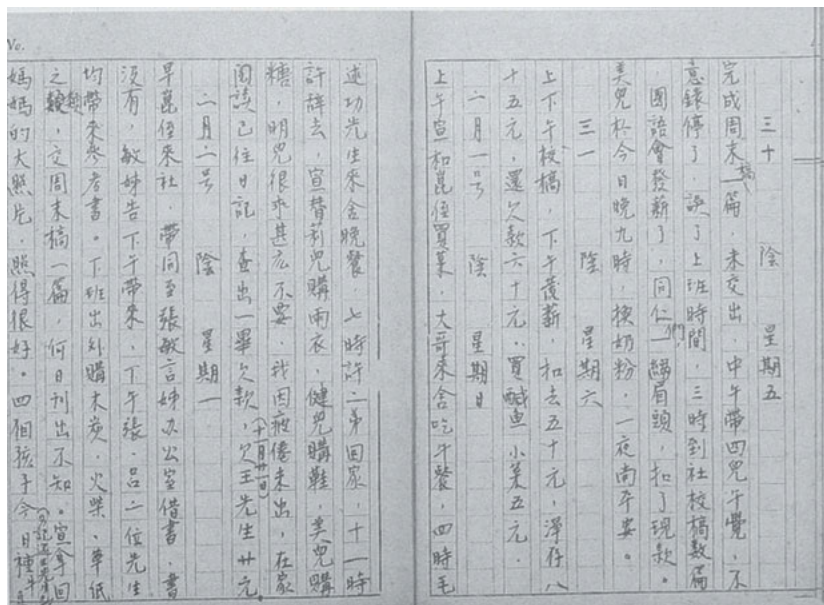 三十 陰 星期五
完成周末稿一篇，未交出，中午帶四兒午覺，不
意錶停了，誤了上班時間，三時到社校稿數篇
，國語會發薪了，同仁們一縐眉頭，扣了現款。
美兒於今日晚九時，換奶粉，一夜尚平安。
三一 陰 星期六
上下午校稿，下午發薪，扣去五十元，淨存八
十五元，還欠款六十元，買鹹魚小菜五元．
二月一号 陰 星期日
上午宣和崑侄買菜，大哥來舍吃午餐，四時毛
述功先生來舍晚餐，七時許二弟回家，十一時
許辞去，宣替莉兒購雨衣，健兒購鞋，美兒購
糖，明兒很乖甚広不要，我因疲倦未出，在家
閱讀已往日記，查出一畢欠款，（十一月廿一日）欠王先生廿元。
二月二号 陰 星期一
早崑侄來社，帶同至張敏言姊办公室借書，書
沒有，敏姊告下午帶來，下午張、呂二位先生
均帶來參考書。下班出外購木炭，火柴、草紙
之類，交周末稿一篇，何日刊出不知。宣拿回
媽媽的大照片，照得很好。四個孩子今日種牛